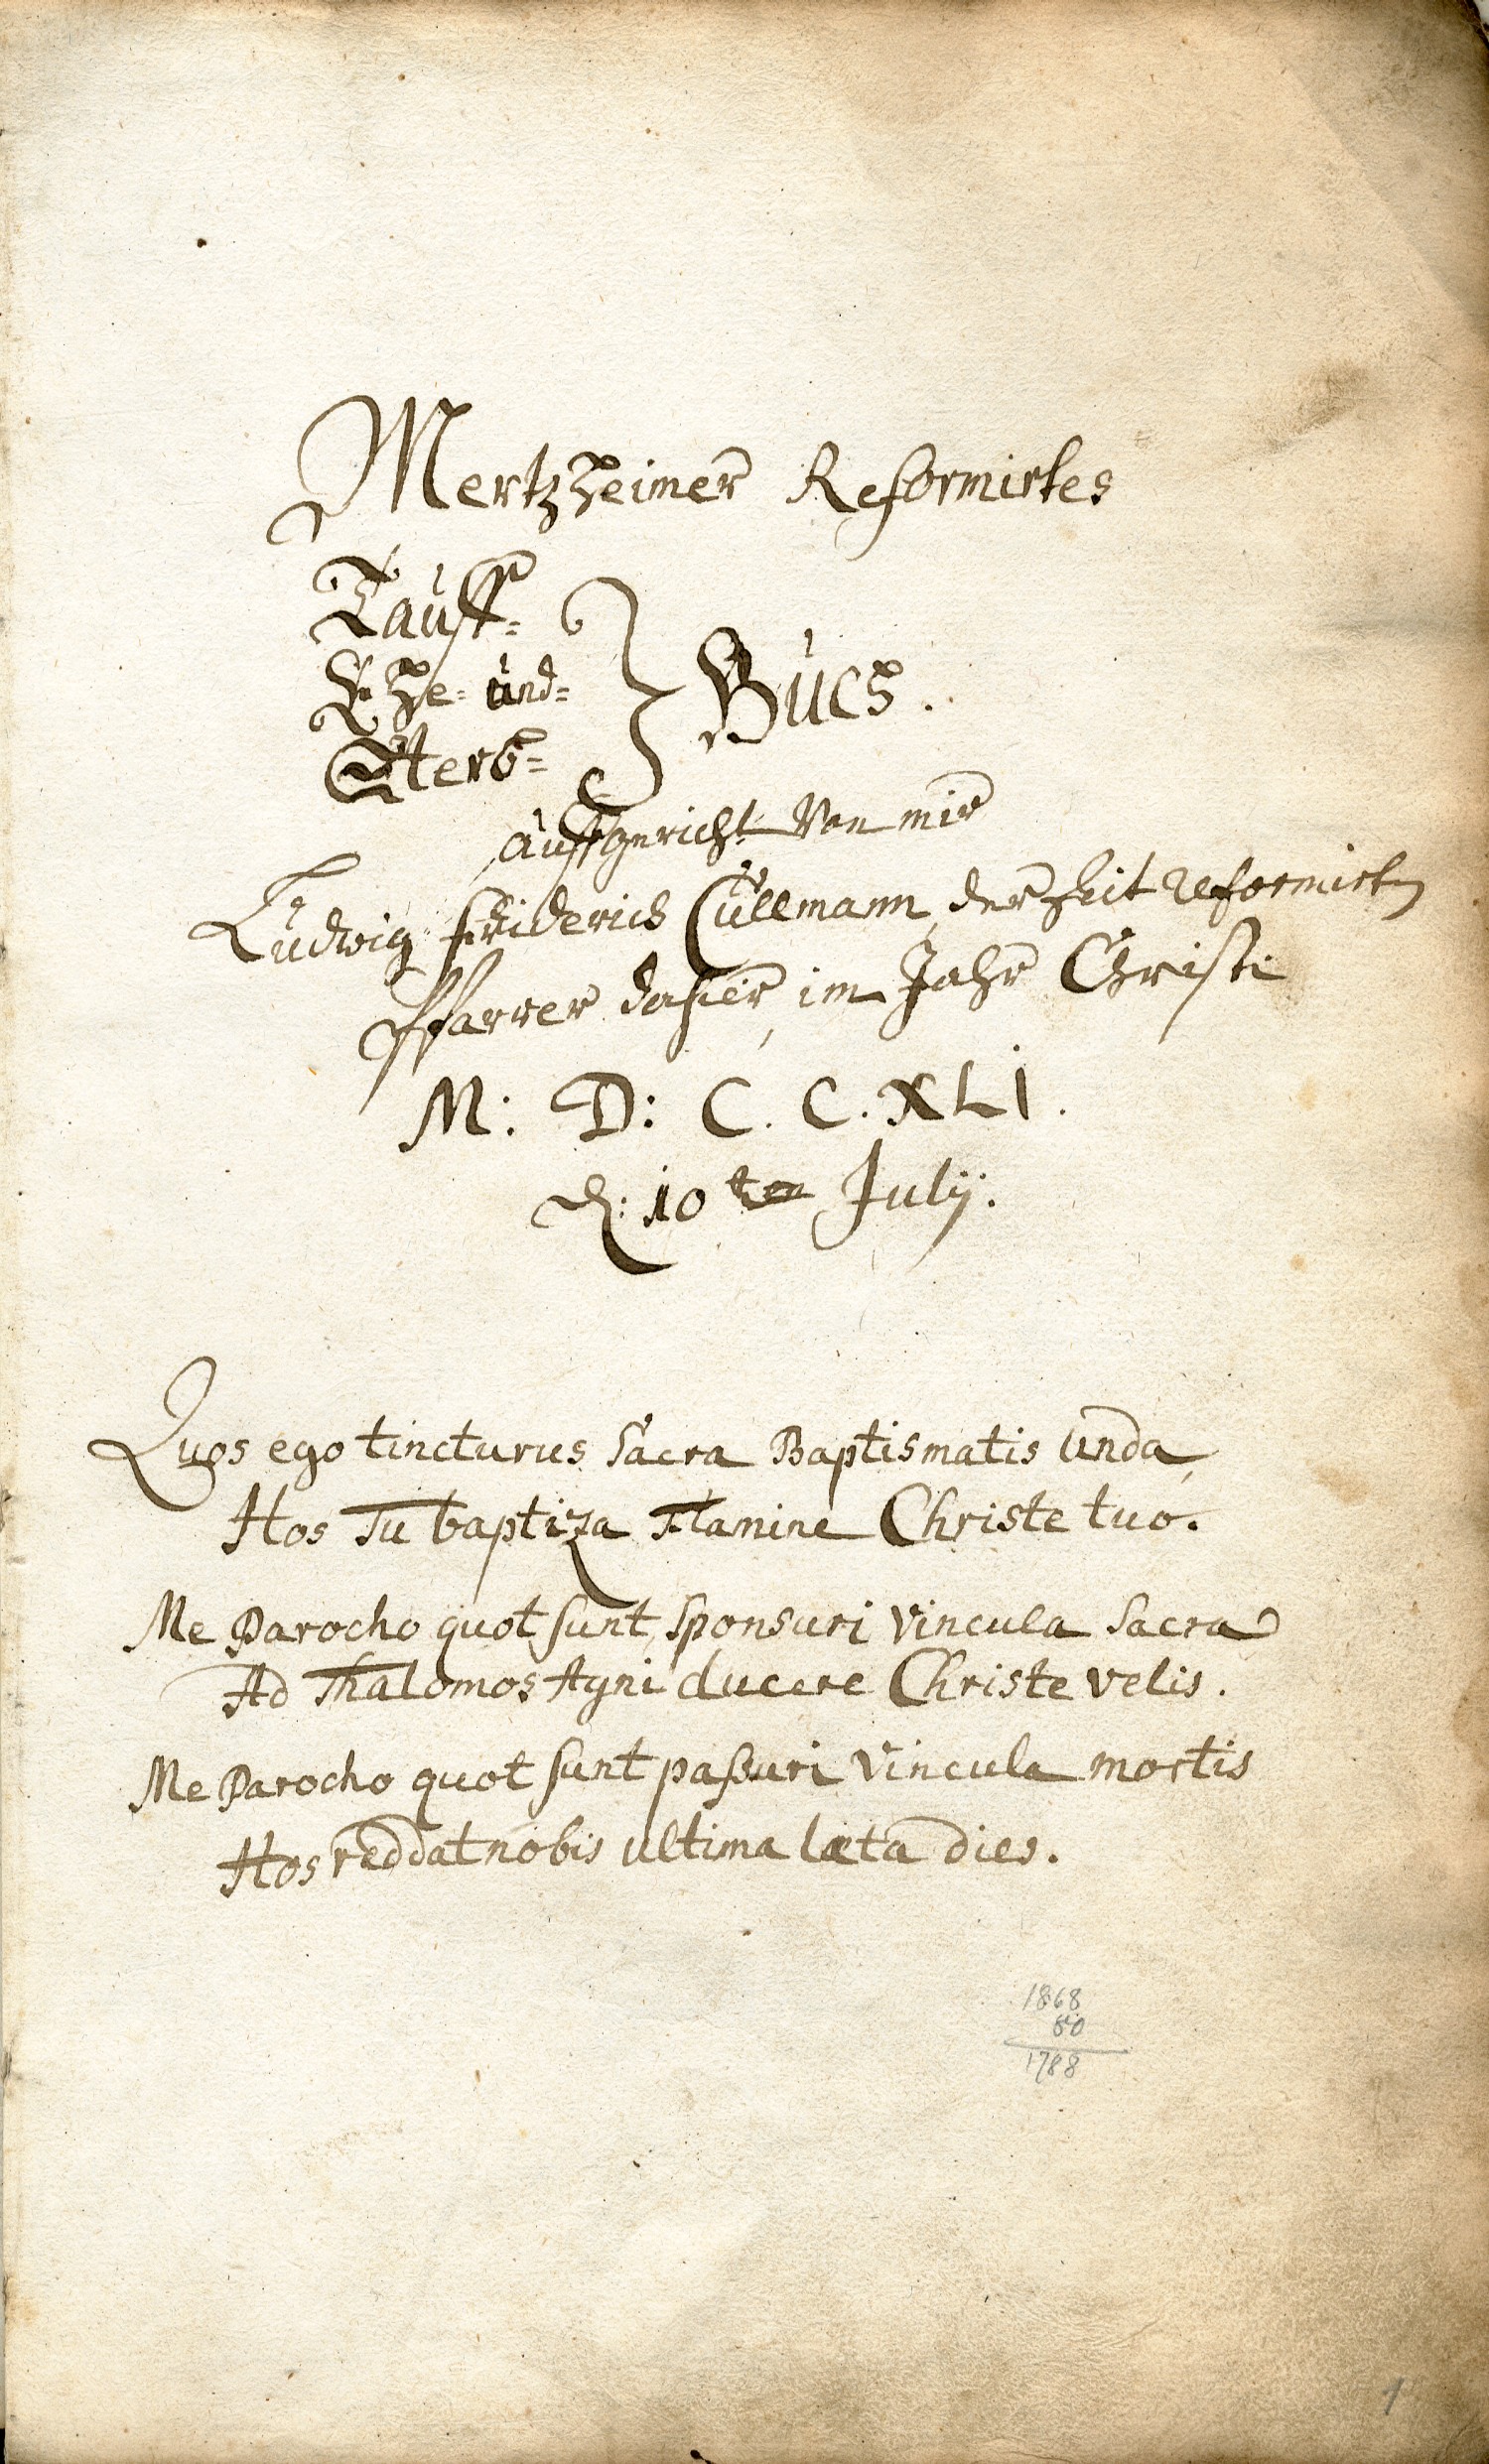 Mertzheimer Reformirtes
Tauff=
Ehe= und=
Sterb=
Buch.
auffgericht Von mir
Ludwig Friderich Cullmann, der Zeit reformirten
Pfarrer dahier, im Jahr Christi
M: D: C. C. XLI.
d: 10ten Julij.
Quos ego tincturus Sacra Baptismatis unda,
Hos Tu baptiza Flamine Christe tuo.
Me Parocho quot sunt, sponsuri Vincula Sacra
Ad Thalomos Agni ducere Christe velis.
Me Parocho quot sunt paßuri Vincula mortis
Hos reddat nobis ultima læta dies.
1868
80
1788
1